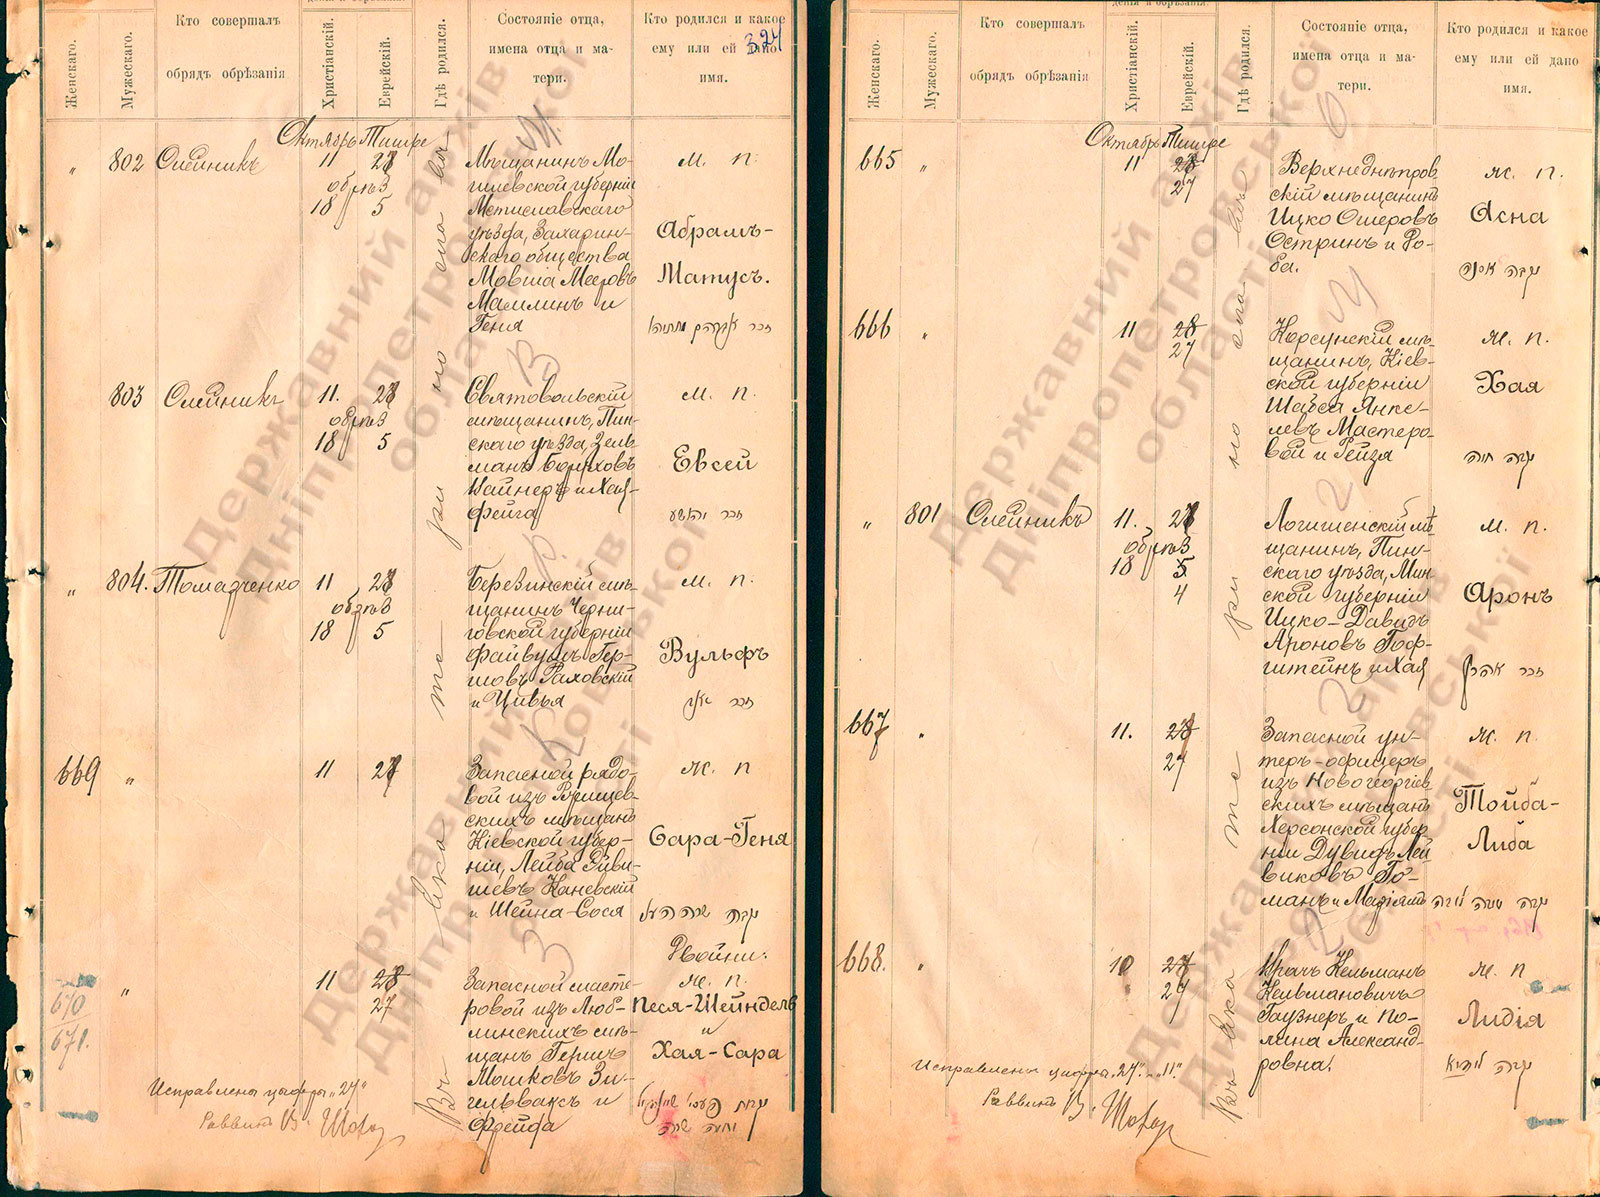 324
Женскаго.
Мужескаго.
Кто совершалъ
обрядъ обрѣзанія
Христіанскій.
Еврейскій.
Гдѣ родился.
Состояніе отца,
имена отца и ма-
тери.
Кто родился и какое
ему или ей дано
имя.
Октябрь Тишре
" 802 Олейникъ 11 27
обрѣз
18 5
Мѣщанинъ Мо-
гилевской губерніи
Мстиславскаго
уѣзда, Захарин-
скаго общества
Мовша Мееровъ
и
Геня
м. п.
Абрамъ-
Матусъ.
803 Олейникъ 11. 27
обрѣз
18 5
Святовольскій
мѣщанинъ, Пин-
скаго уѣзда, Зель-
манъ Боруховъ
Вайнеръ и Хая-
Фейга
м. п.
Евсей
" 804. Томашенко 11 27
обрѣз
18 5
Березинскій мѣ-
щанинъ Черни-
говской губерніи
Файвушъ Гер-
шовъ Раховскій
и Цивья
м. п.
Вульфъ
669 " 11 27
Запасной рядо-
вой изъ Ржищев-
скихъ мѣщанъ
Кіевской губер-
ніи, Лейба
Каневскій
и Шейна-Сося
ж. п
Сара-Геня
670
671.
" 11 28
27
Запасной масте-
ровой изъ Люб-
линскихъ мѣ-
щанъ Гершъ
Мошковъ Зи-
гельваксъ и
Фрейда
Двойни:
ж. п.
Песя-Шейндель
и
Хая-Сара
Въ Екатеринославѣ
Исправлены цифры "27"
Раввинъ В. Шо
Женскаго.
Мужескаго.
Кто совершалъ
обрядъ обрѣзанія
Христіанскій.
Еврейскій.
Гдѣ родился.
Состояніе отца,
имена отца и ма-
тери.
Кто родился и какое
ему или ей дано
имя.
Октябрь Тишре
665 " 11 28
27
Верхнеднѣпров
скій мѣщанинъ
Ицко Ошеровъ
Остринъ и Ро-
ба.
ж. п.
Асна
666 " 11 28
27
Корсунскій мѣ-
щанинъ, Кіев-
ской губерніи
Шабса Янке-
левъ Мастеро-
вой и Рейзя
ж. п.
Хая
נקבה חיה
" 801 Олейникъ 11. 27
обрѣз
18 5
4
Логишенскій мѣ
щанинъ, Пин-
скаго уѣзда, Мин-
ской губерніи
Ицко-Давидъ
Ароновъ Гоф-
штейнъ и Хая
м. п.
Аронъ
זכר אהרן
667 " 11. 28
27
Запасной ун-
теръ-офицеръ
изъ Новогеоргіев-
скихъ мѣщанъ
Херсонской губер
ніи Дувидъ Лей
виковъ Го-
манъ и Маріямъ
ж. п.
Тойба-
Либа
668. " 10 27
Врачъ Кельманъ
Кельмановичъ
Гаузнеръ и По-
лина Александ-
ровна.
ж. п
Лидія
Въ Екатеринославѣ
Исправлены цифры "27" "11".
Раввинъ В. Шо
Державний архів
Дніпропетровської
області